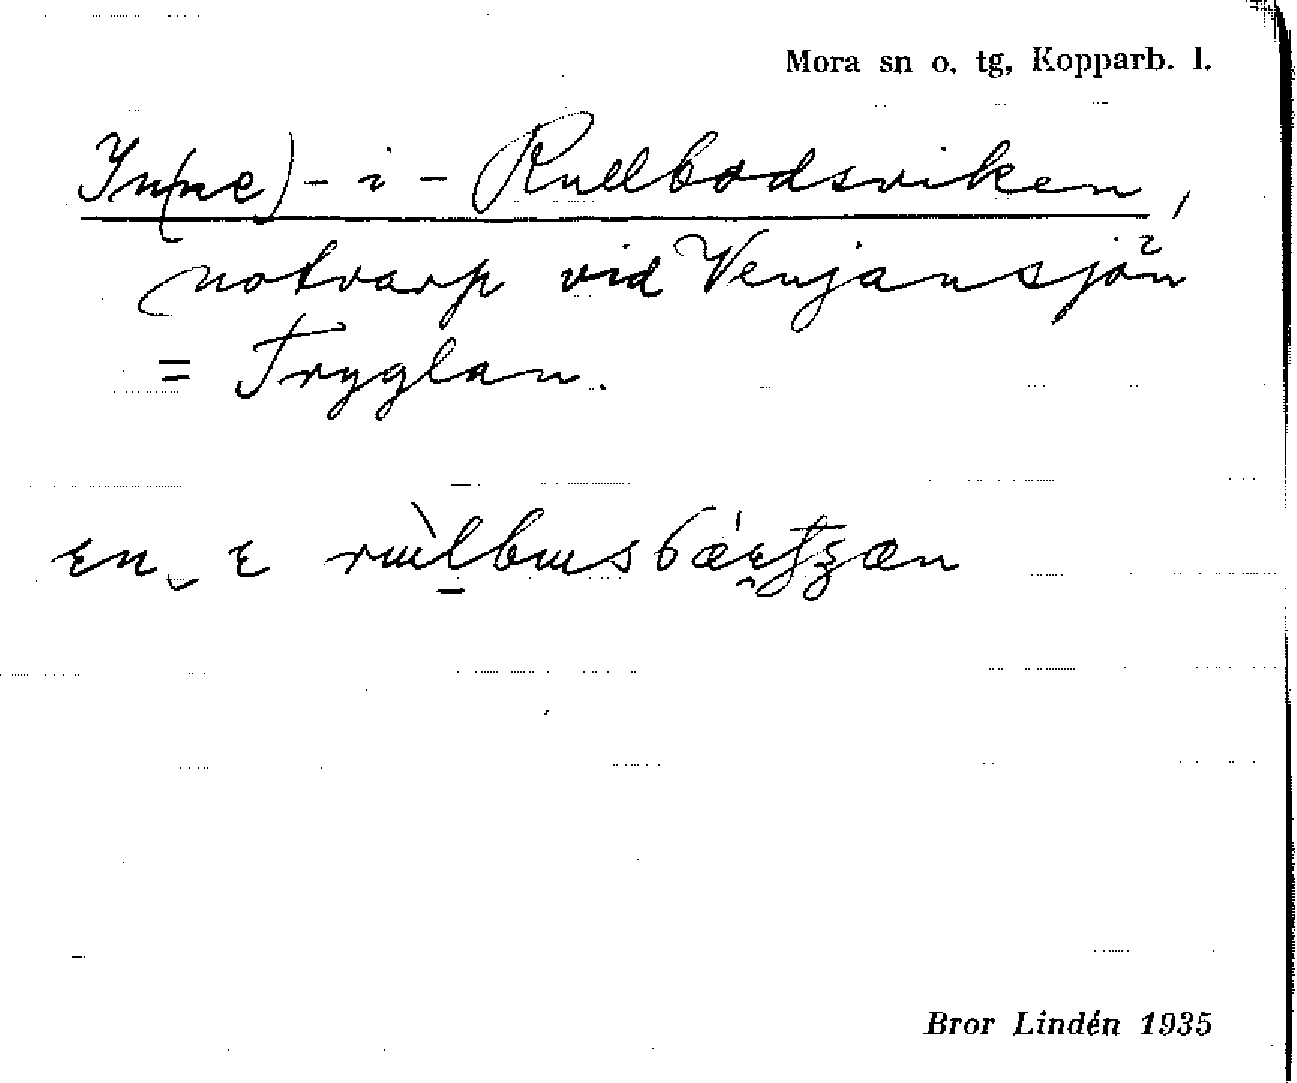 Mora sn o. tg, Kopparb. l.
In(ne)-i-Rullbodsviken,
notvarp vid Venjansjön
= Tryglan.
Bror Lindén 1935